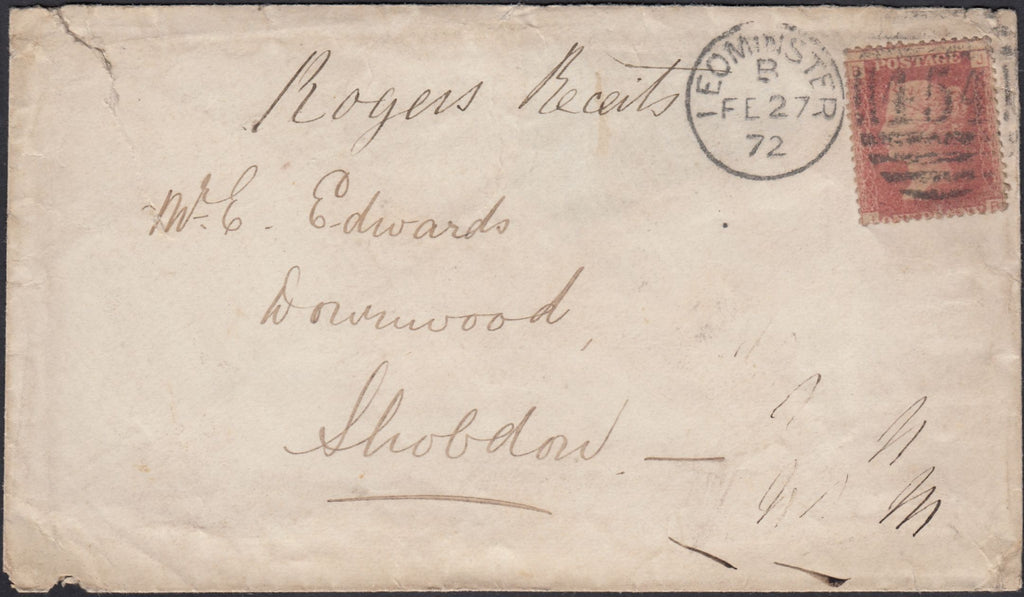 Rogers Receits
LEOMINSTER
B
FE 27
72
POSTAGE
454
Mr. E. Edwards
Downwood,
Shobdon